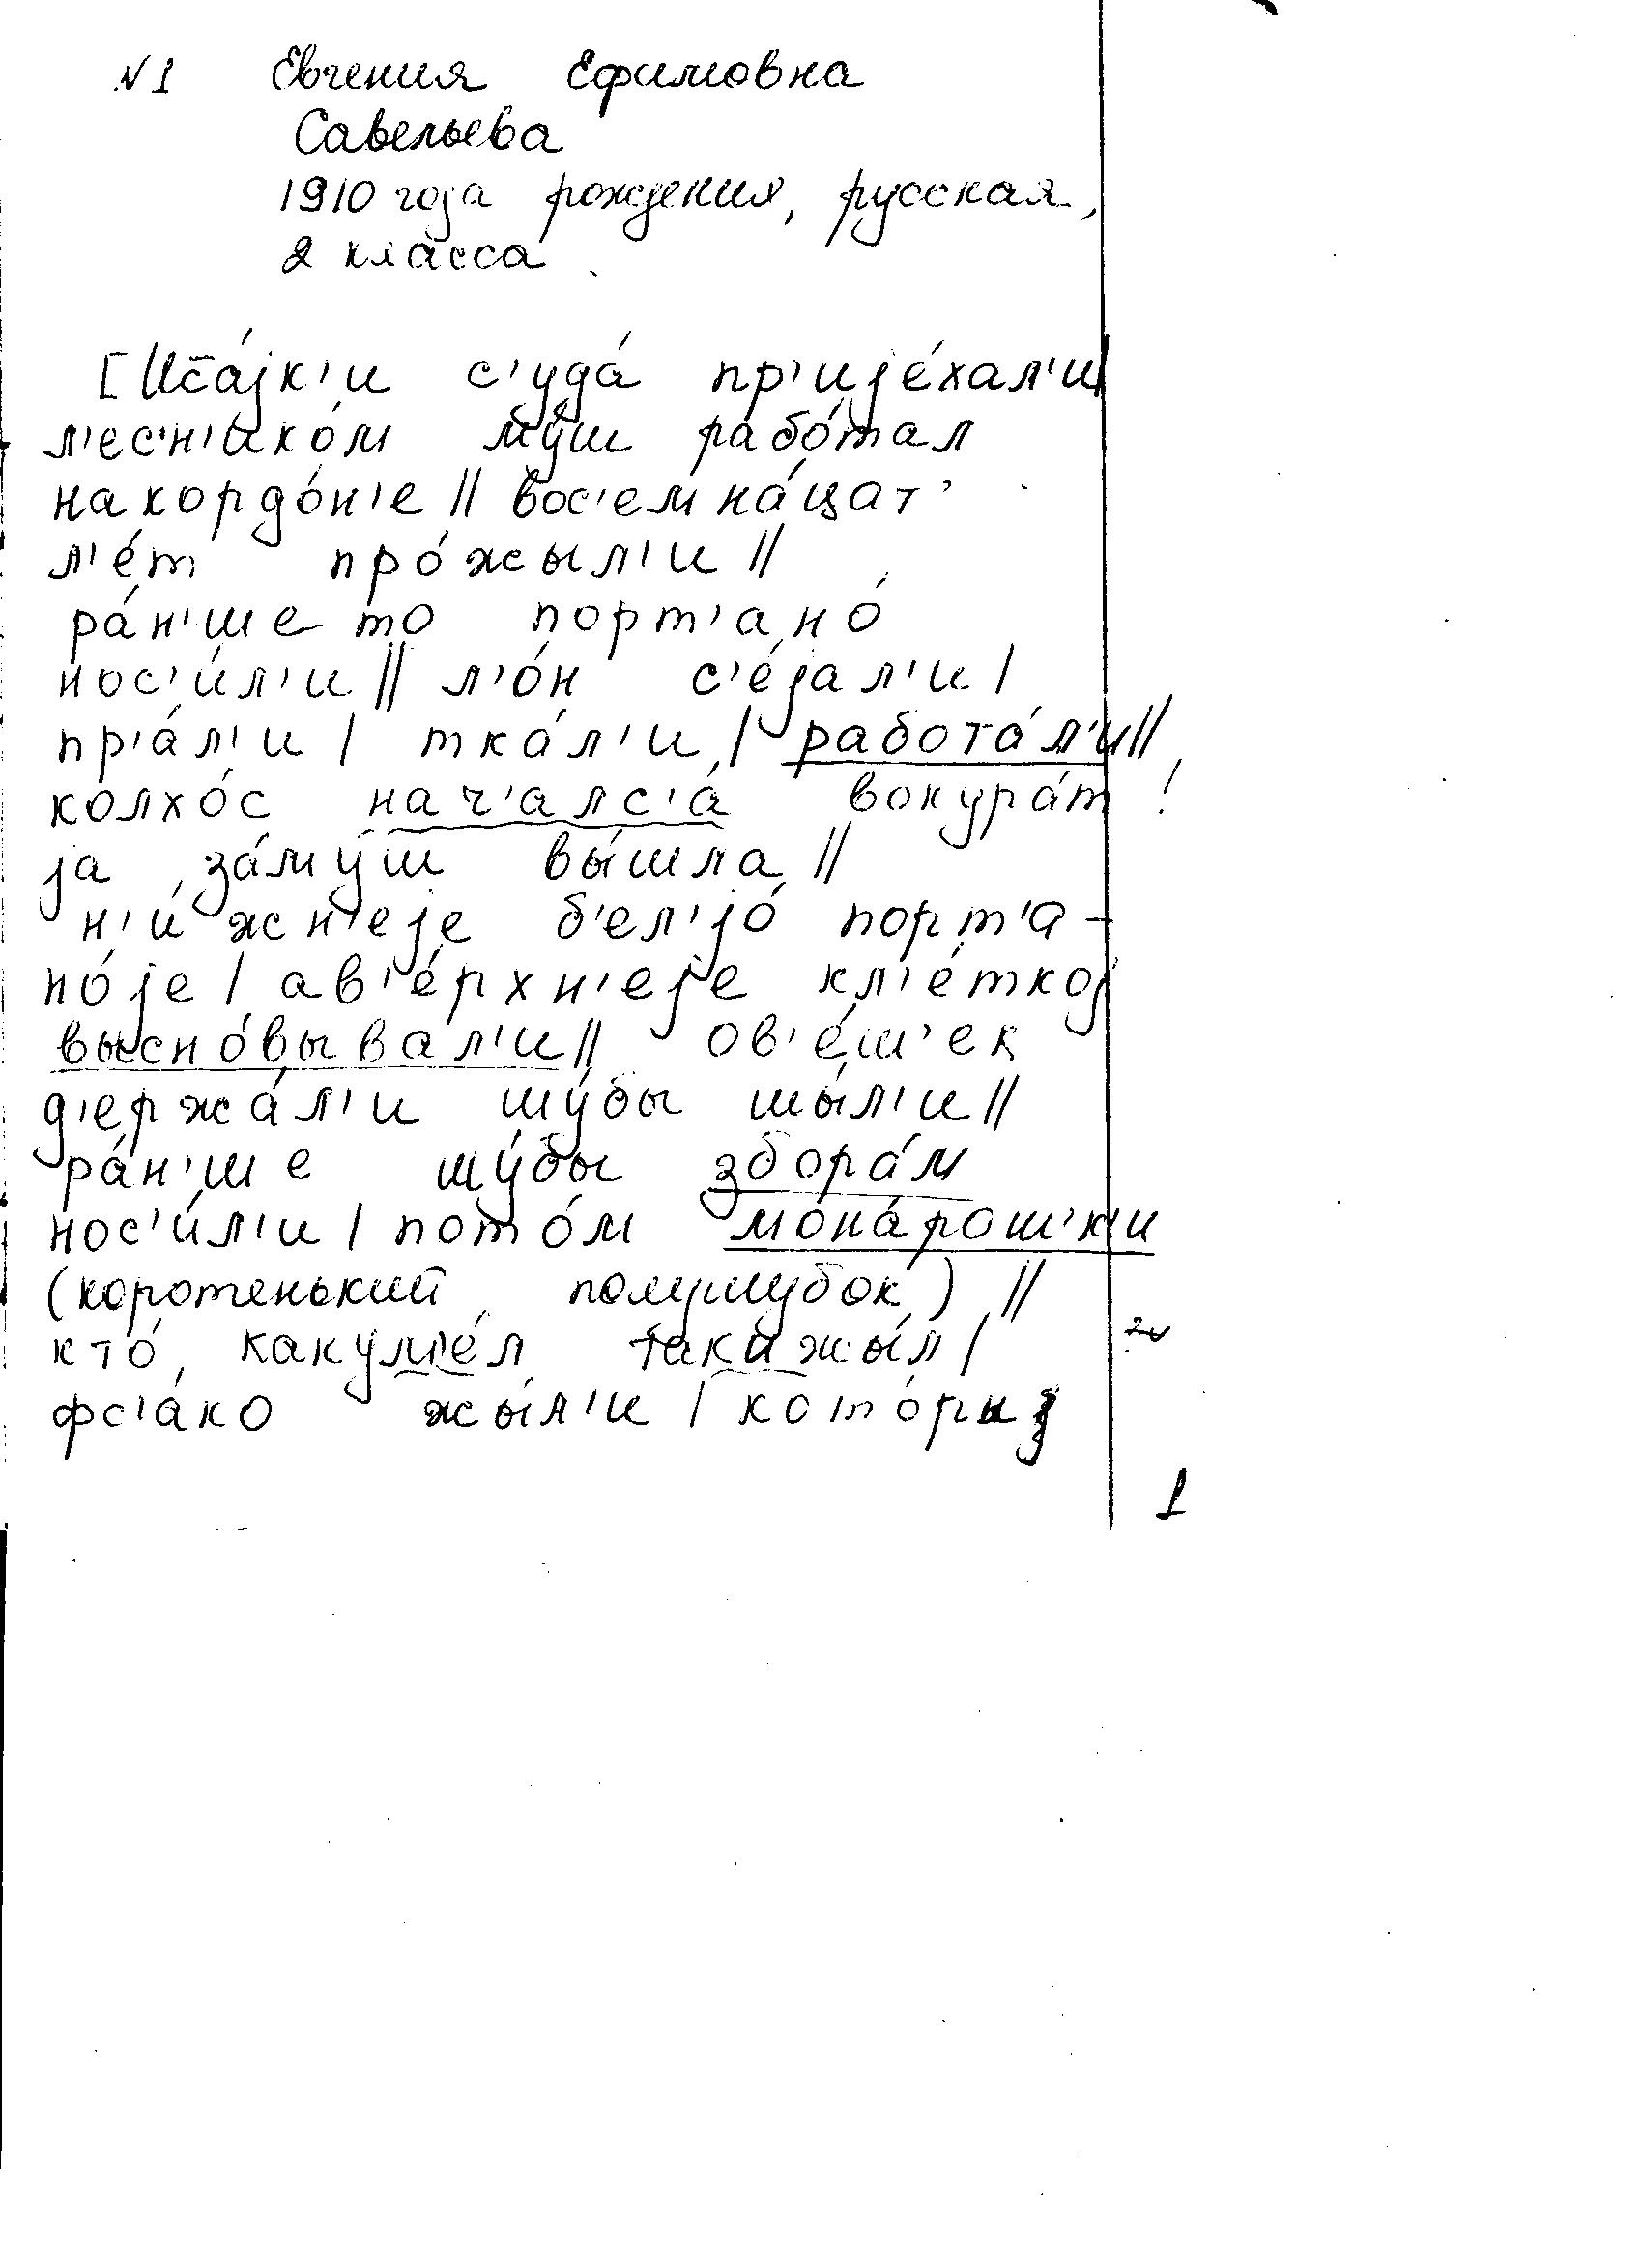 №1 Евгения Ефимовна
Савельева
1910 года рождения, русская,
2 класса
[Исаjк'и с'уда́ пр'ијéхал'и|
л'ес'н'ико́м му́ш рабо́тал
на кордо́н'е || вос'емна́цат'
л'е́т про́жыл'и ||
ра́н'ше то порт'ано́
нос'и́л'и || л'о́н с'е́јал'и |
пр'а́л'и | тка́л'и | работа́л'и ||
колхо́с нач'алс'а́ вокура́т !
ја за́му́ш вы́шла ||
н'и́жн'еје б'ел'јо́ порт'а-
но́је | а в'е́рхн'еје кл'е́ткој
высно́вывал'и || ов'е́ш'ек
д'ержа́л'и шу́бы шы́л'и ||
ра́н'ше шу́бы збора́м
нос'и́л'и | пото́м мона́рош'к'и
(коротенький полушубок) ||
кто́ как ум'е́л так и жы́л |
фс'а́ко жы́л'и | кото́рыј
1